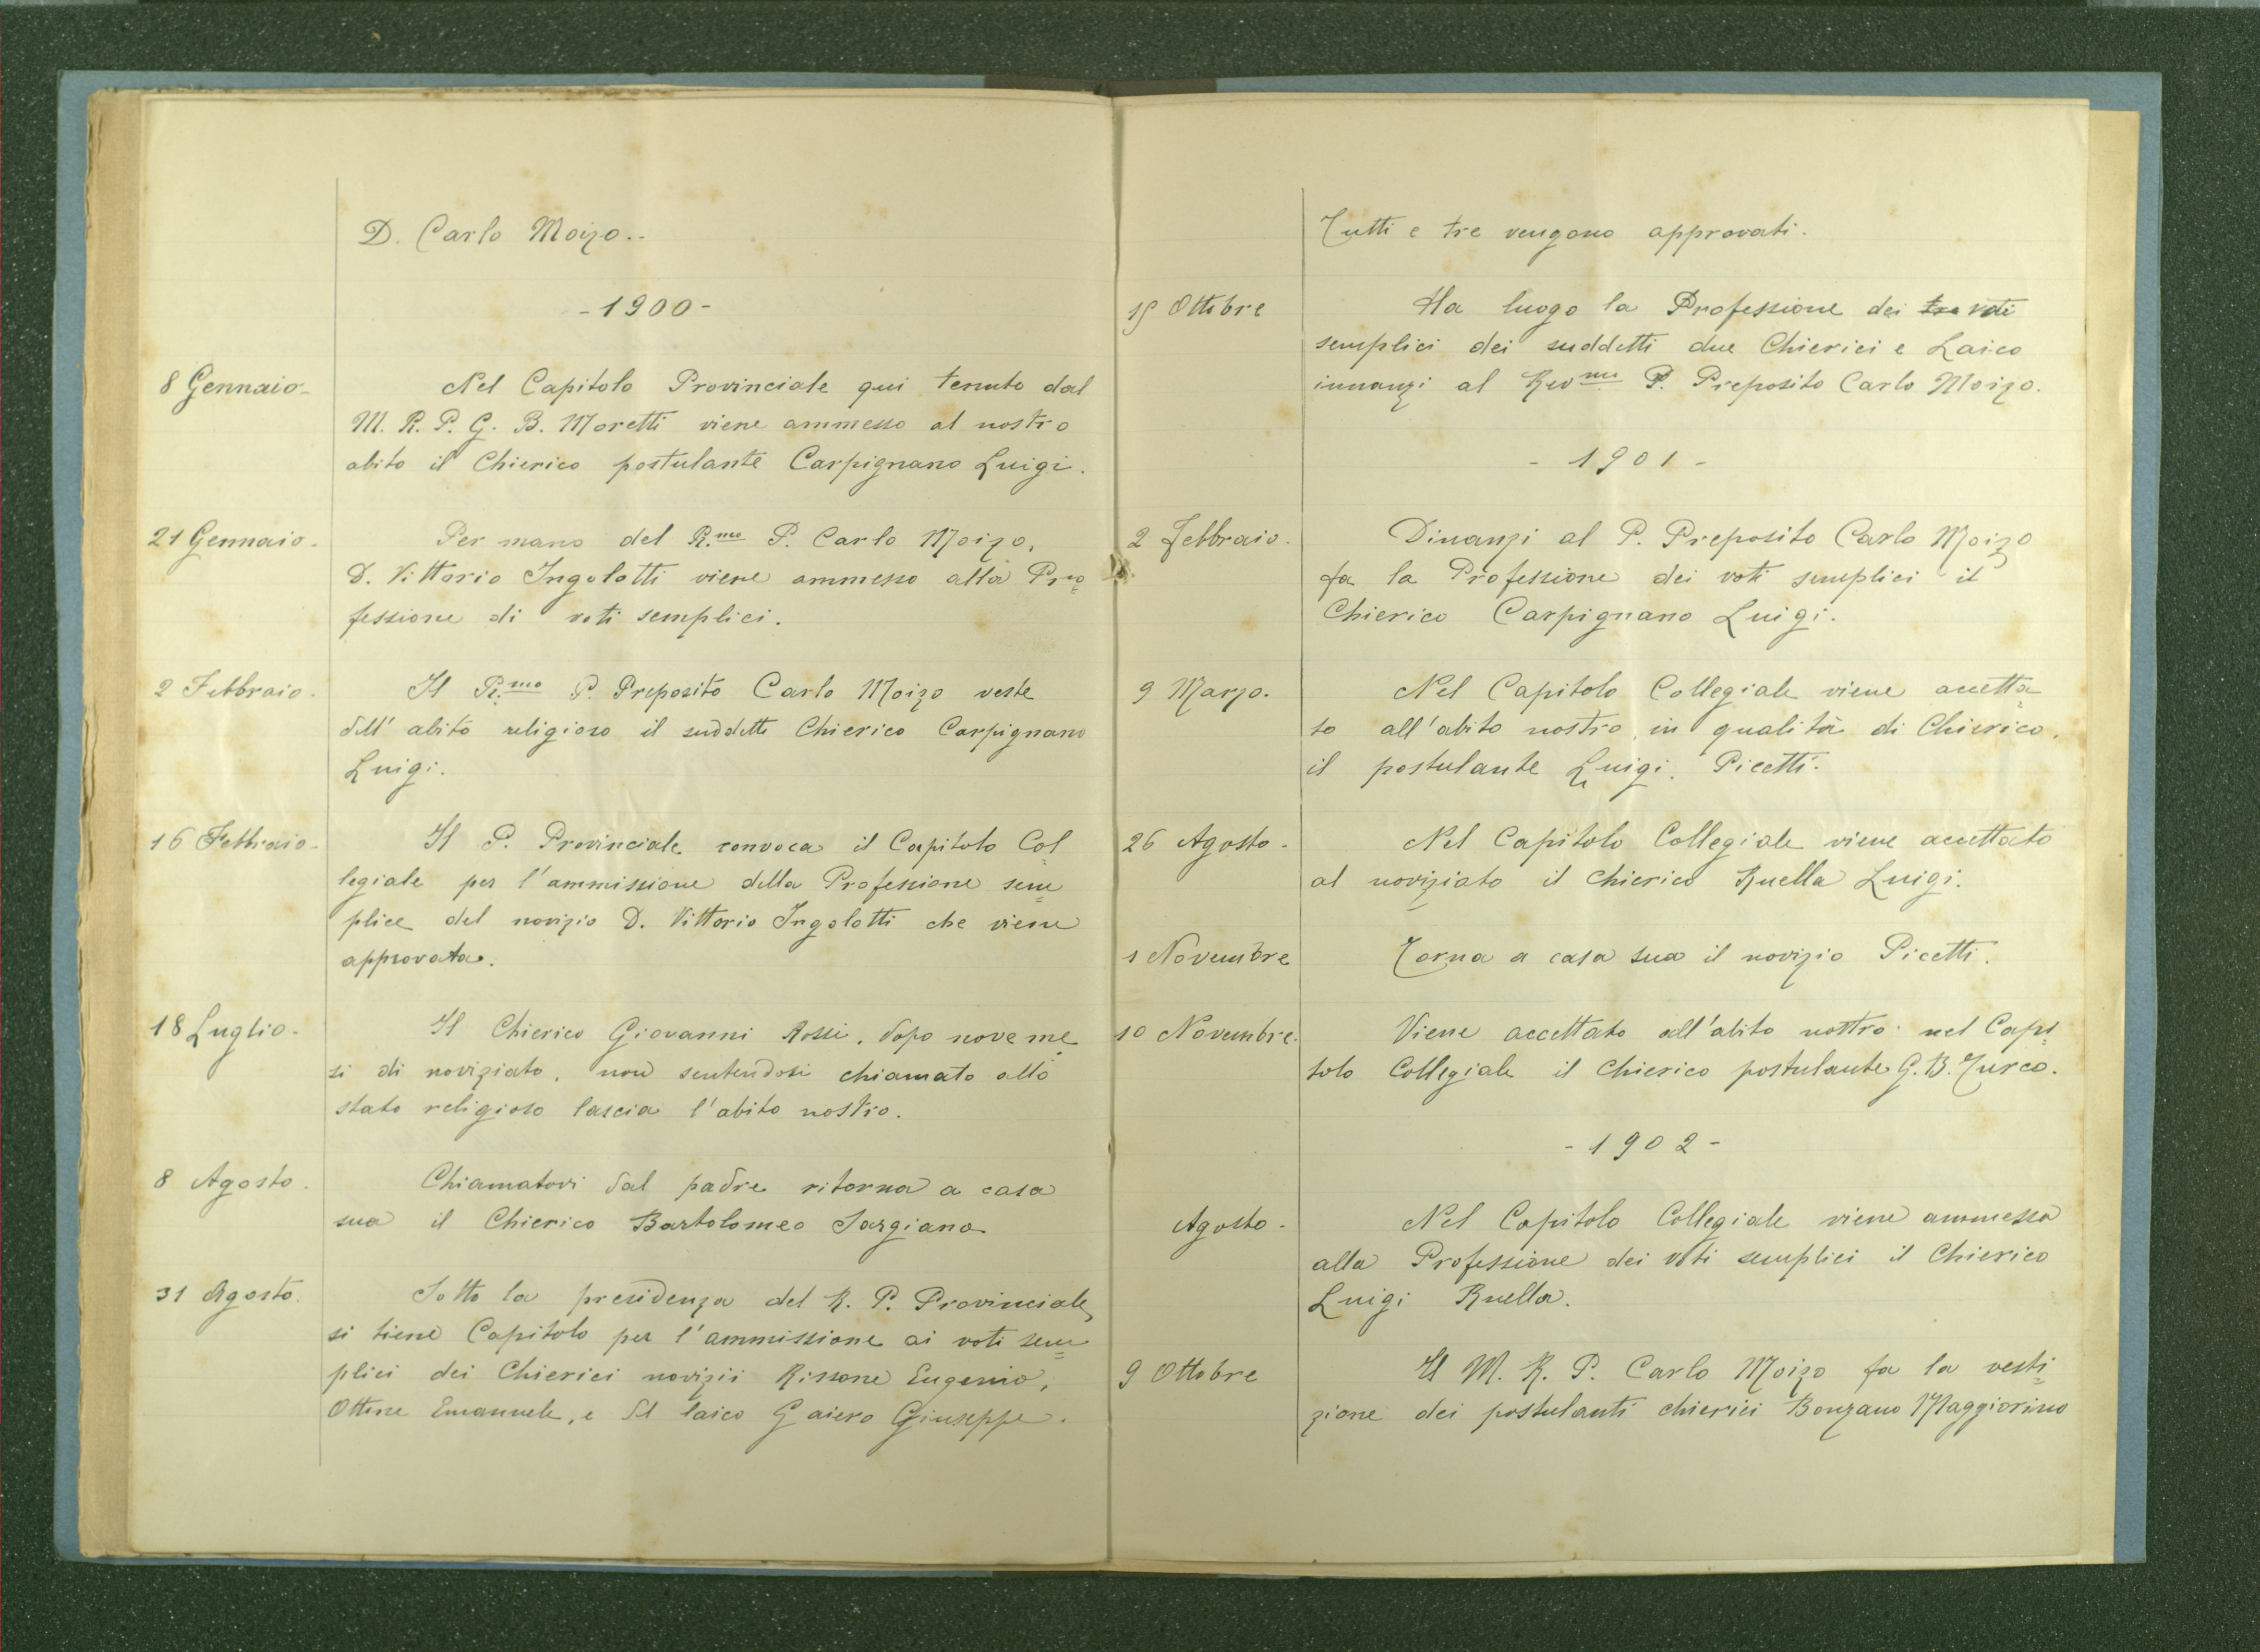 D. Carlo Moizo..
- 1900 -
8 Gennaio -
Nel Capitolo Provinciale qui tenuto dal
M. R. P. G. B. Moretti viene ammesso al nostro
abito il Chierico postulante Carpignano Luigi.
21 Gennaio.
Per mano del R.mo P. Carlo Moizo,
D. Vittorio Ingolotti viene ammesso alla Pro=
fessione di voti semplici.
2 Febbraio.
Il R.mo P. Preposito Carlo Moizo veste
dell'abito religioso il suddetto Chierico Carpignano
Luigi.
16 Febbraio -
Il P. Provinciale convoca il Capitolo Col=
legiale per l'ammissione della Professione sem=
plice del novizio D. Vittorio Ingolotti che viene
approvata.
18 Luglio -
Il Chierico Giovanni Rossi, dopo nove me=
si di noviziato, non sentendosi chiamato allo
stato religioso lascia l'abito nostro.
8 Agosto.
Chiamatovi dal padre ritorna a casa
sua il Chierico Bartolomeo Sargiano
31 Agosto.
Sotto la presidenza del R. P. Provinciale,
si tiene Capitolo per l'ammissione ai voti sem=
plici dei Chierici novizii Rissone Eugenio,
Ottone Emanuele, e del laico Gaiero Giuseppe.
Tutti e tre vengono approvati.
15 Ottobre
Ha luogo la Professione dei tre voti
semplici dei suddetti due Chierici e Laico
innanzi al Rev.mo P. Preposito Carlo Moizo.
- 1901 -
2 Febbraio.
Dinanzi al P. Preposito Carlo Moizo
fa la Professione dei voti semplici il
Chierico Carpignano Luigi.
9 Marzo.
Nel Capitolo Collegiale viene accetta=
to all'abito nostro, in qualità di Chierico,
il postulante Luigi Picetti.
26 Agosto -
Nel Capitolo Collegiale viene accettato
al noviziato il Chierico Ruella Luigi.
1 Novembre
Torna a casa sua il novizio Picetti.
10 Novembre.
Viene accettato all'abito nostro nel Capi=
tolo Collegiale il Chierico postulante G. B. Turco.
- 1902 -
Agosto -
Nel Capitolo Collegiale viene ammesso
alla Professione dei voti semplici il Chierico
Luigi Ruella.
9 Ottobre
Il M. R. P. Carlo Moizo fa la vesti=
zione dei postulanti chierici Bonzano Maggiorino